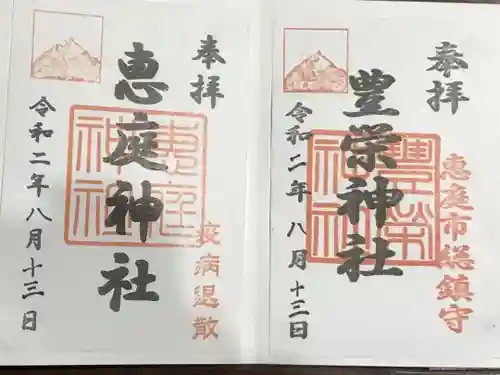 奉拝
恵日市総鎮守
豊栄神社
豊榮神社
令和二年八月十三日
奉拝
疫病退散
恵庭神社
恵庭神社
令和二年八月十三日